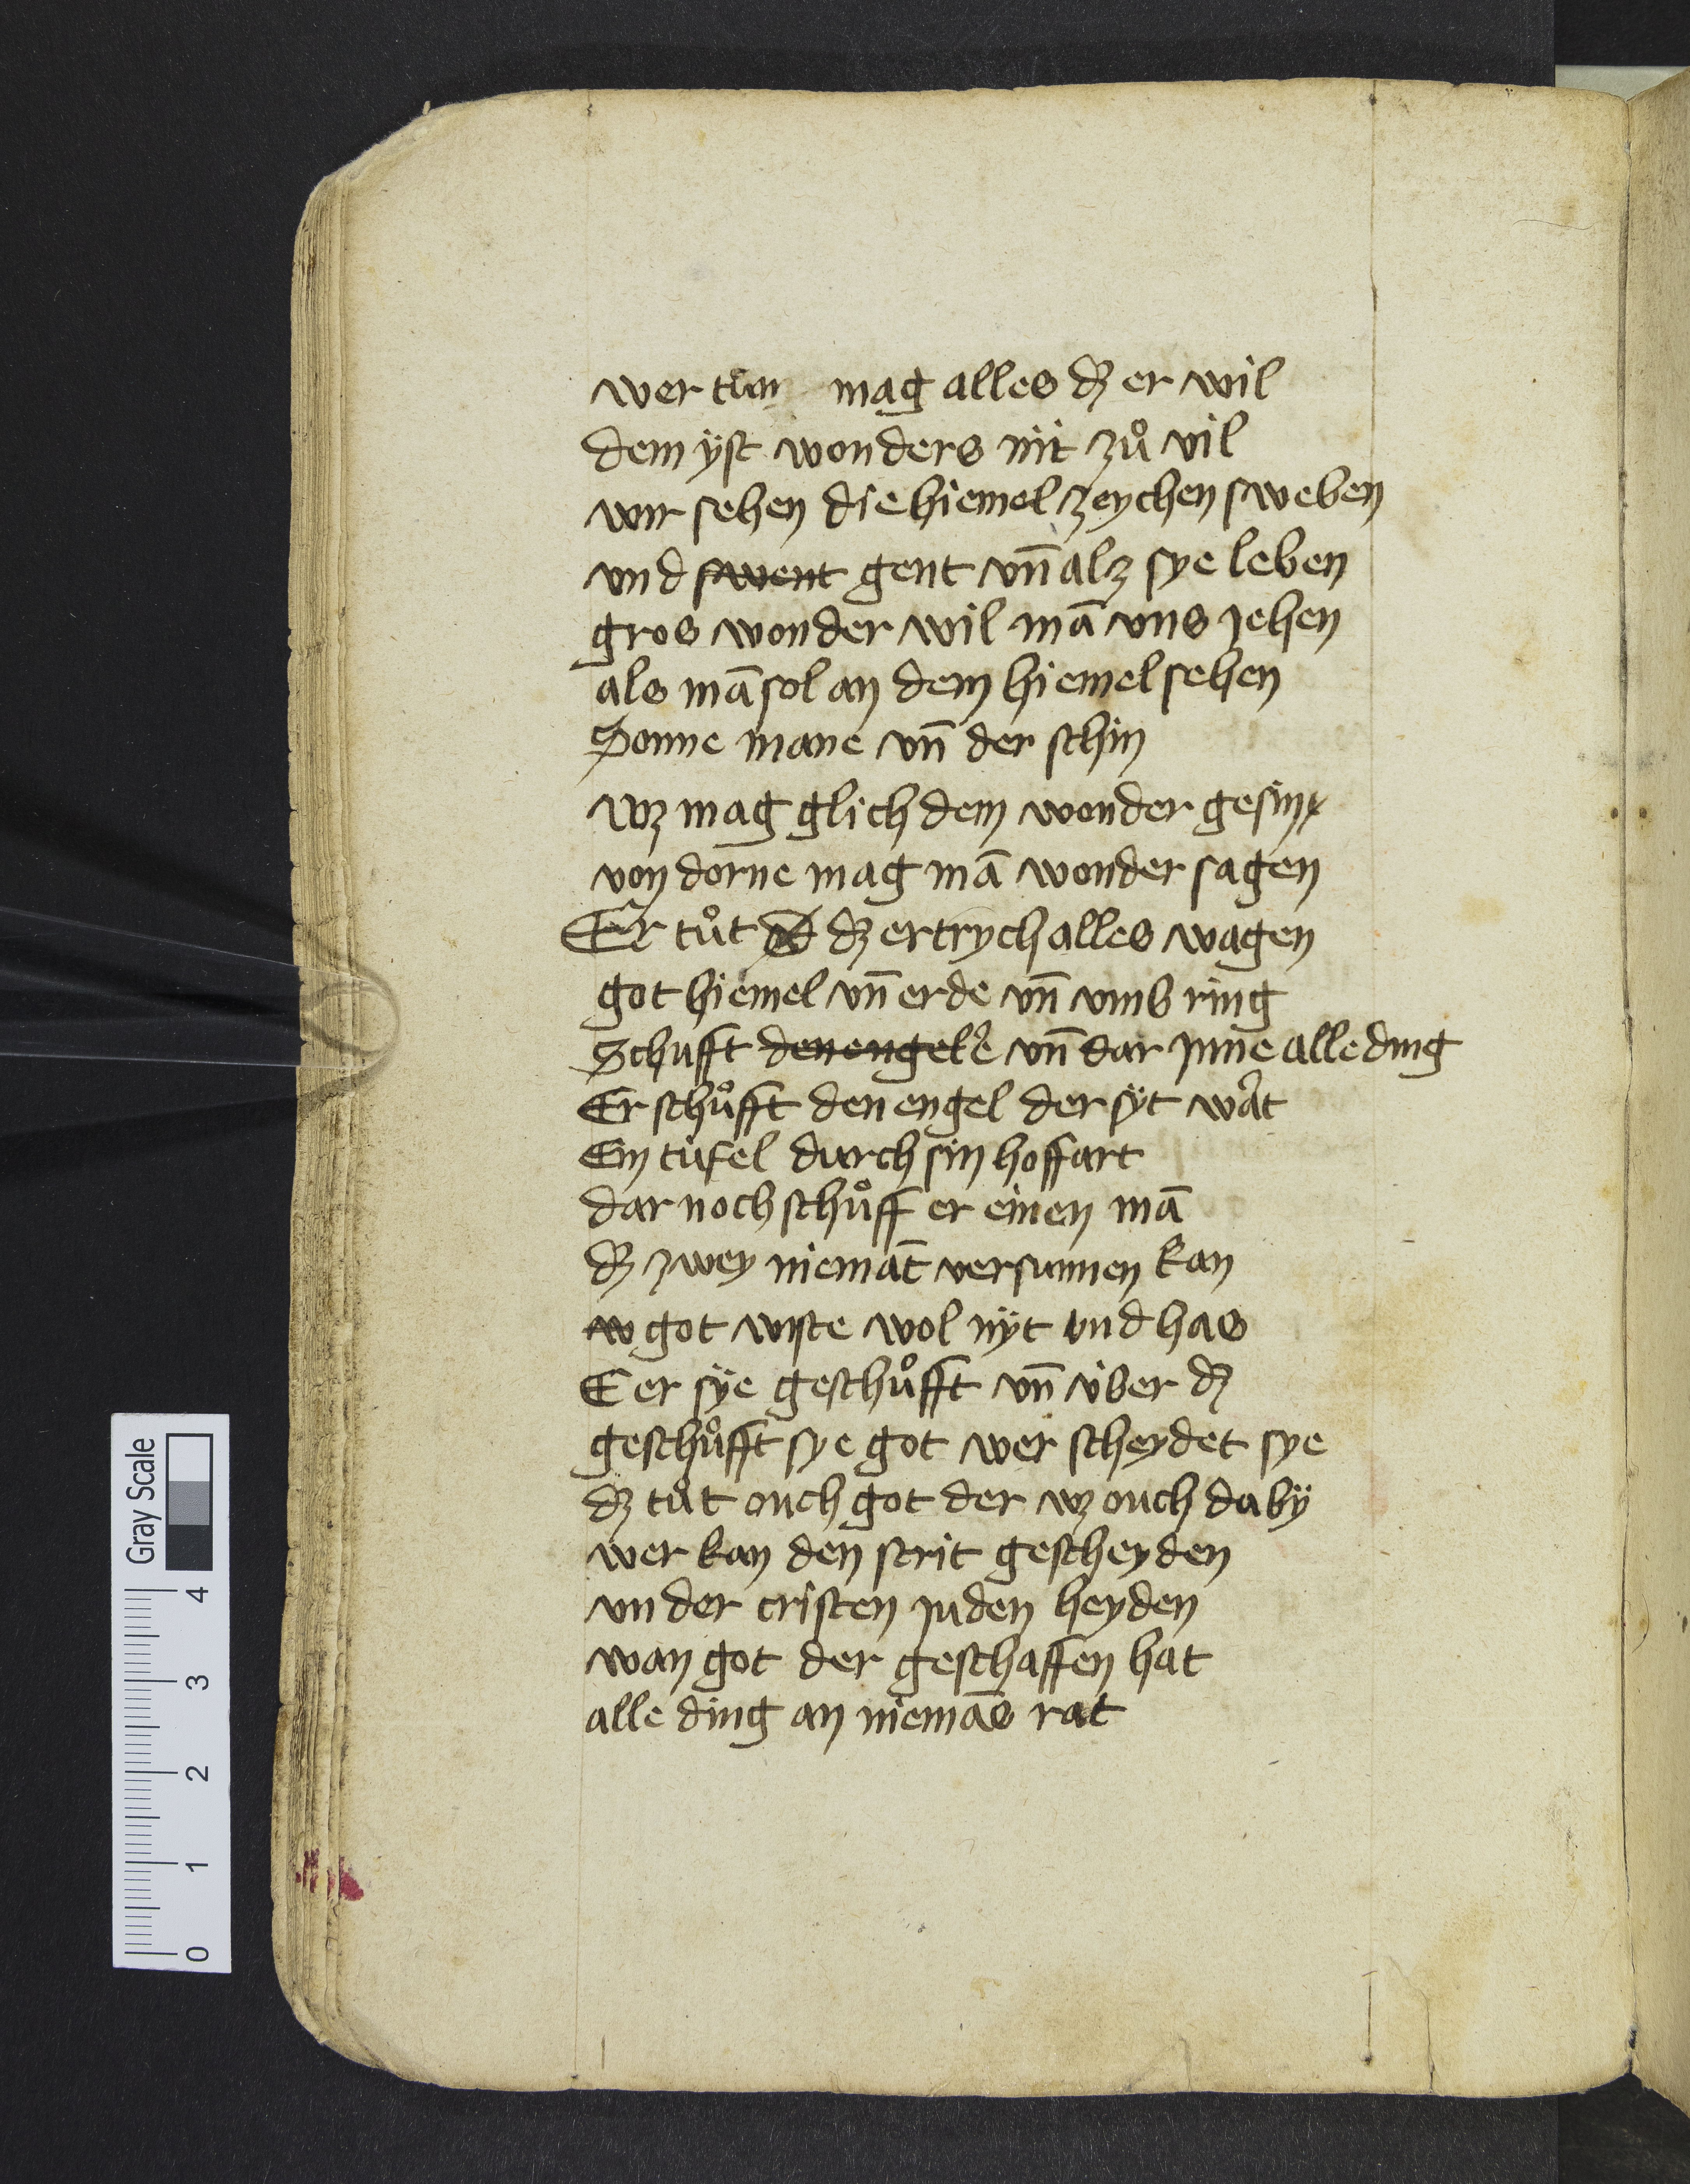 wer tuͦn mag alles dʒ er wil
dem ÿst wonders nit zuͦ vil
wir sehen die hiemel zeychen sweben
vnd swent gent vn̄ alz sye leben
gros wonder wil mā vns jehen
als mā sol an dem hiemel sehen
Sonne mane vn̄ der schin
wz mag glich dem wonder gesin
von dorne mag mā wonder sagen
Er tuͦt dʒ ertrych alles wagen
got hiemel vn̄ erde vn̄ vmb ring
Schufft den engel e vn̄ dar jnne alle ding
Er schuͦfft den engel der sÿt wart
Ein tufel durch sin hoffart
dar noch schuͦff er einen mā
dʒ zwey niemāt versunnen kan
w got wiste wol nÿt vnd has
E er sÿe geschuͦfft vn̄ über dʒ
geschuͦfft sye got wer scheydet sye
dʒ tuͦt ouch got der wz ouch da bÿ
wer kan den strit gescheyden
vnder cristen juden heyden
wan got der geschaffen hat
alle ding an niemās rat
Gray Scale
0 1 2 3 4